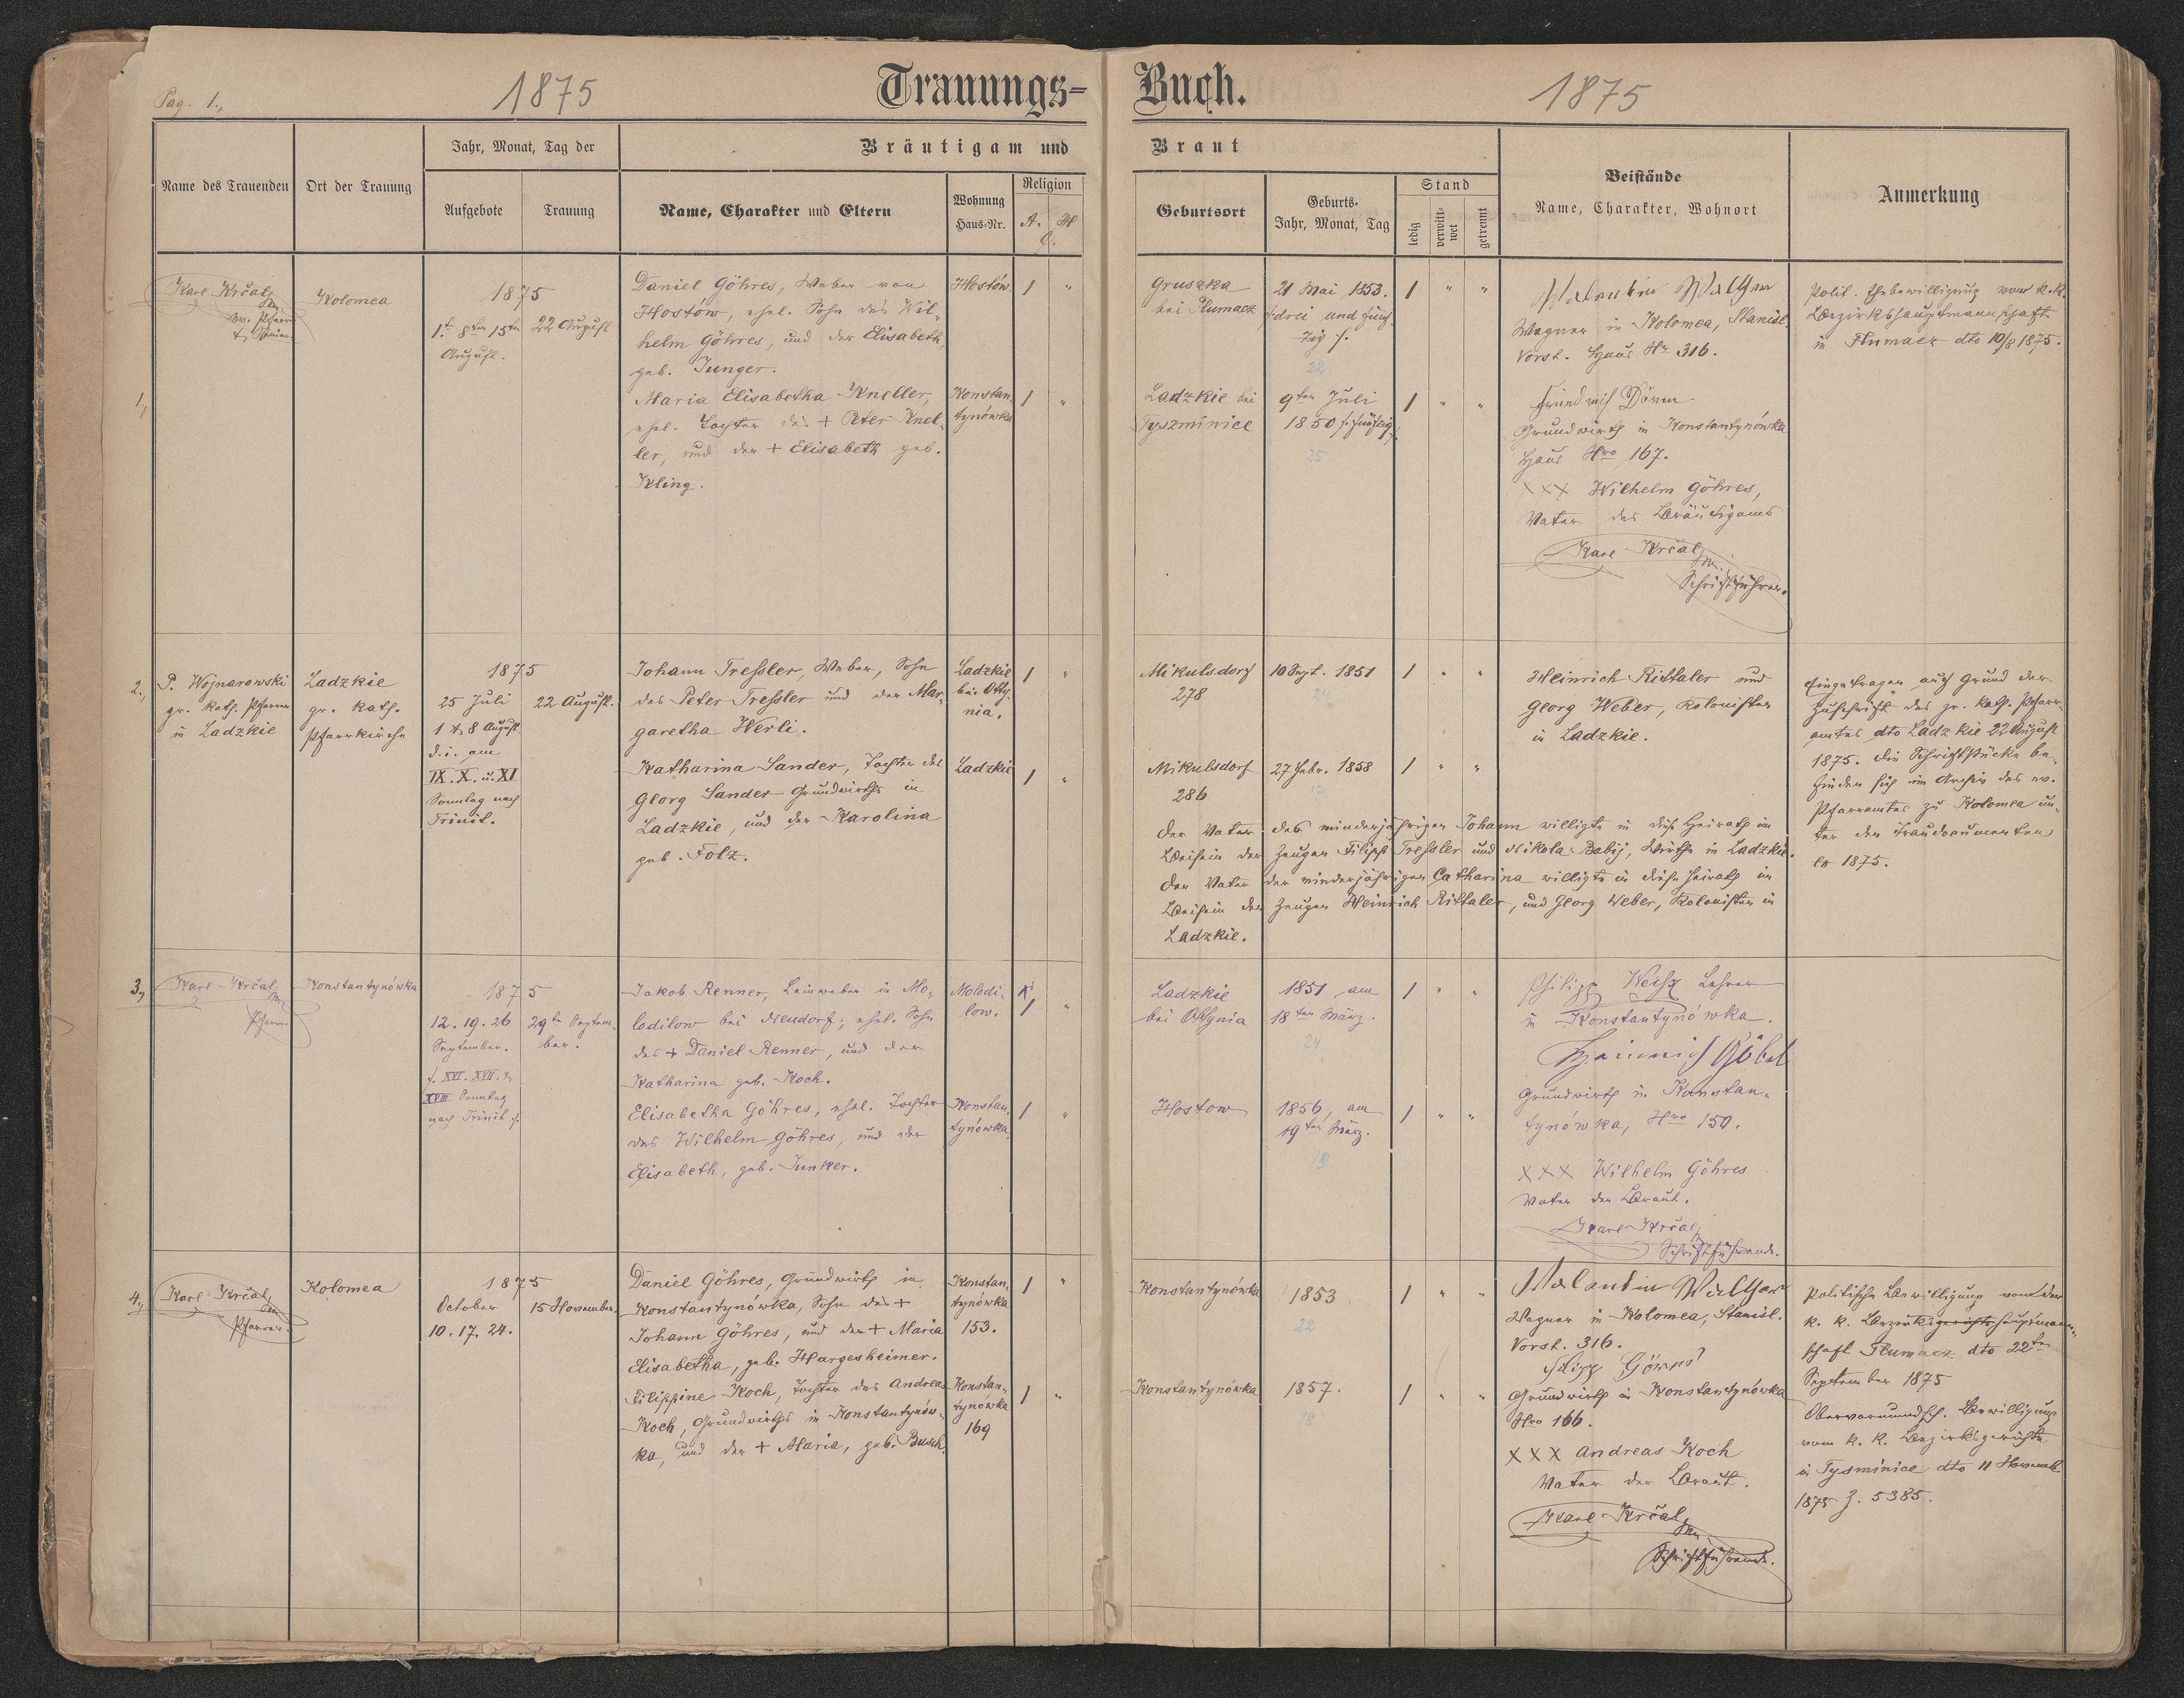 Pag. 1.,
1875
Trauungs-
Buch.
1875
Name des Trauenden
Ort der Trauung
Jahr, Monat, Tag der
Aufgebote
Trauung
Bräutigam und
Name, Charakter und Eltern
Wohnung
Haus-Nr.
Religion
A. H
C.
Braut
Geburtsort
Geburts-
Jahr, Monat, Tag
Stand
ledig
verwitt-
wet
getrennt
Beistände
Name, Charakter, Wohnort
Anmerkung
1.,
Karl Krčal
ev. Pfarrer
Kolomea
1875
1t 8ten 15ten
August.
22 August
Daniel Göhres, Weber von
Hostów, ehel. Sohn des Wil-
helm Göhres, und der Elisabeth,
geb. Junger.
Hostów.
1 "
Maria Elisabetha Kneller,
ehel. Tochter des + Peter Knel-
ler, und der + Elisabeth geb.
Kling.
Konstan-
tynówka
1 "
Gruszka
bei Tlumacz
21 Mai 1853.
/:drei und fünf-
zig :/.
22
1 " "
Ladzkie bei
Tyszminice
9ten Juli
1850 /:fünfzig:/
25
1 " "
Valentin Walther
Wagner in Kolomea, Stanisl.
Vorst. Haus Nr 316.
Friedrich
Grundwirth in Konstantynówka
Haus Nro 167.
XXX Wilhelm Göhres,
Vater des Bräutigams
Karl Krčal
Schriftführer.
Polit. Ehebewilligung vom k.k.
Bezirkshauptmannschaft
in Tlumacz dto 10/8 1875.
2.,
P. Wojnarowski
gr. kath. Pfarrer
in Ladzkie
Ladzkie
gr. kath.
Pfarrkirche
1875
25 Juli
1 & 8 August
d.i. am
IX. X. u. XI
Sonntag nach
Trinit.
22 August.
Johann Treßler, Weber, Sohn
des Peter Treßler und der Mar-
garetha Werli.
Ladzkie
bei Otty-
nia.
1 "
Katharina Sander, Tochter des
Georg Sander Grundwirths in
Ladzkie, und der Karolina
geb. Folz.
Ladzkie
1 "
Mikulsdorf
278
10 Sept. 1851
24
1 " "
Mikulsdorf
286
27 Febr. 1858
17
1 " "
Der Vater des minderjährigen Johann willigte in diese Heirath im
Beisein der Zeugen Filipp Treßler und Nikola Babij, Wirthe in Ladzkie.
Der Vater der minderjährigen Catharina willigte in diese Heirath im
Beisein der Zeugen Heinrich Rittaler, und Georg Weber, Kolonisten in
Ladzkie.
Heinrich Rittaler und
Georg Weber, Kolonisten
in Ladzkie.
Eingetragen auf Grund der
Zuschrift des gr. kath. Pfarr-
amtes dto Ladzkie 22 August
1875. Die Schriftstücke be-
finden sich im Archiv des ev.
Pfarramtes zu Kolomea un-
ter den Traudocumenten
1875.
3.,
Karl Krčal
Pfarrer
Konstantynówka
1875
12. 19. 26
September.
/: XVI. XVII. &
XVIII Sonntag
nach Trinit :/.
29te Septem-
ber.
Jakob Renner, Leinweber in Mo-
lodilow bei Neudorf; ehel. Sohn
des + Daniel Renner, und der
Katharina geb. Koch.
Molodi-
low.
1 "
Elisabetha Göhres, ehel. Tochter
des Wilhelm Göhres, und der
Elisabeth, geb. Junker.
Konstan-
tynówka.
1 "
Ladzkie
bei Ottynia
1851 am
18ten März.
24
1 " "
Hostow
1856, am
19ten März.
19
1 " "
Philipp Weiß Lehrer
in Konstantynówka.
Heinrich Göbel
Grundwirth in Konstan-
tynówka, Nro 150.
XXX Wilhelm Göhres
Vater der Braut.
Karl Krčal
Schriftführende.
4.,
Karl Krčal
Pfarrer.
Kolomea
1875
October
10. 17. 24.
15 November.
Daniel Göhres, Grundwirth in
Konstantynówka, Sohn des +
Johann Göhres, und der + Maria
Elisabetha, geb. Hargesheimer.
Konstan-
tynówka
153.
1 "
Filippine Koch, Tochter des Andreas
Koch, Grundwirths in Konstantynów-
ka, und der + Maria, geb. Busch.
Konstan-
tynówka
169
1 "
Konstantynówka
1853
22
1 " "
Konstantynówka
1857.
18
1 " "
Valentin Walther
Wagner in Kolomea, Stanisl.
Vorst. 316.
Grundwirth in Konstantynówka
Nro 166.
XXX Andreas Koch
Vater der Braut.
Karl Krčal
Schriftführende.
Politische Bewilligung von der
k. k. Bezirksgerichtshauptmann-
schaft Tlumacz dto 22ten
September 1875
Obervormundsch. Bewilligung
vom k. k. Bezirksgerichte
in Tysminice dto 11 Novemb.
1875 Z. 5385.